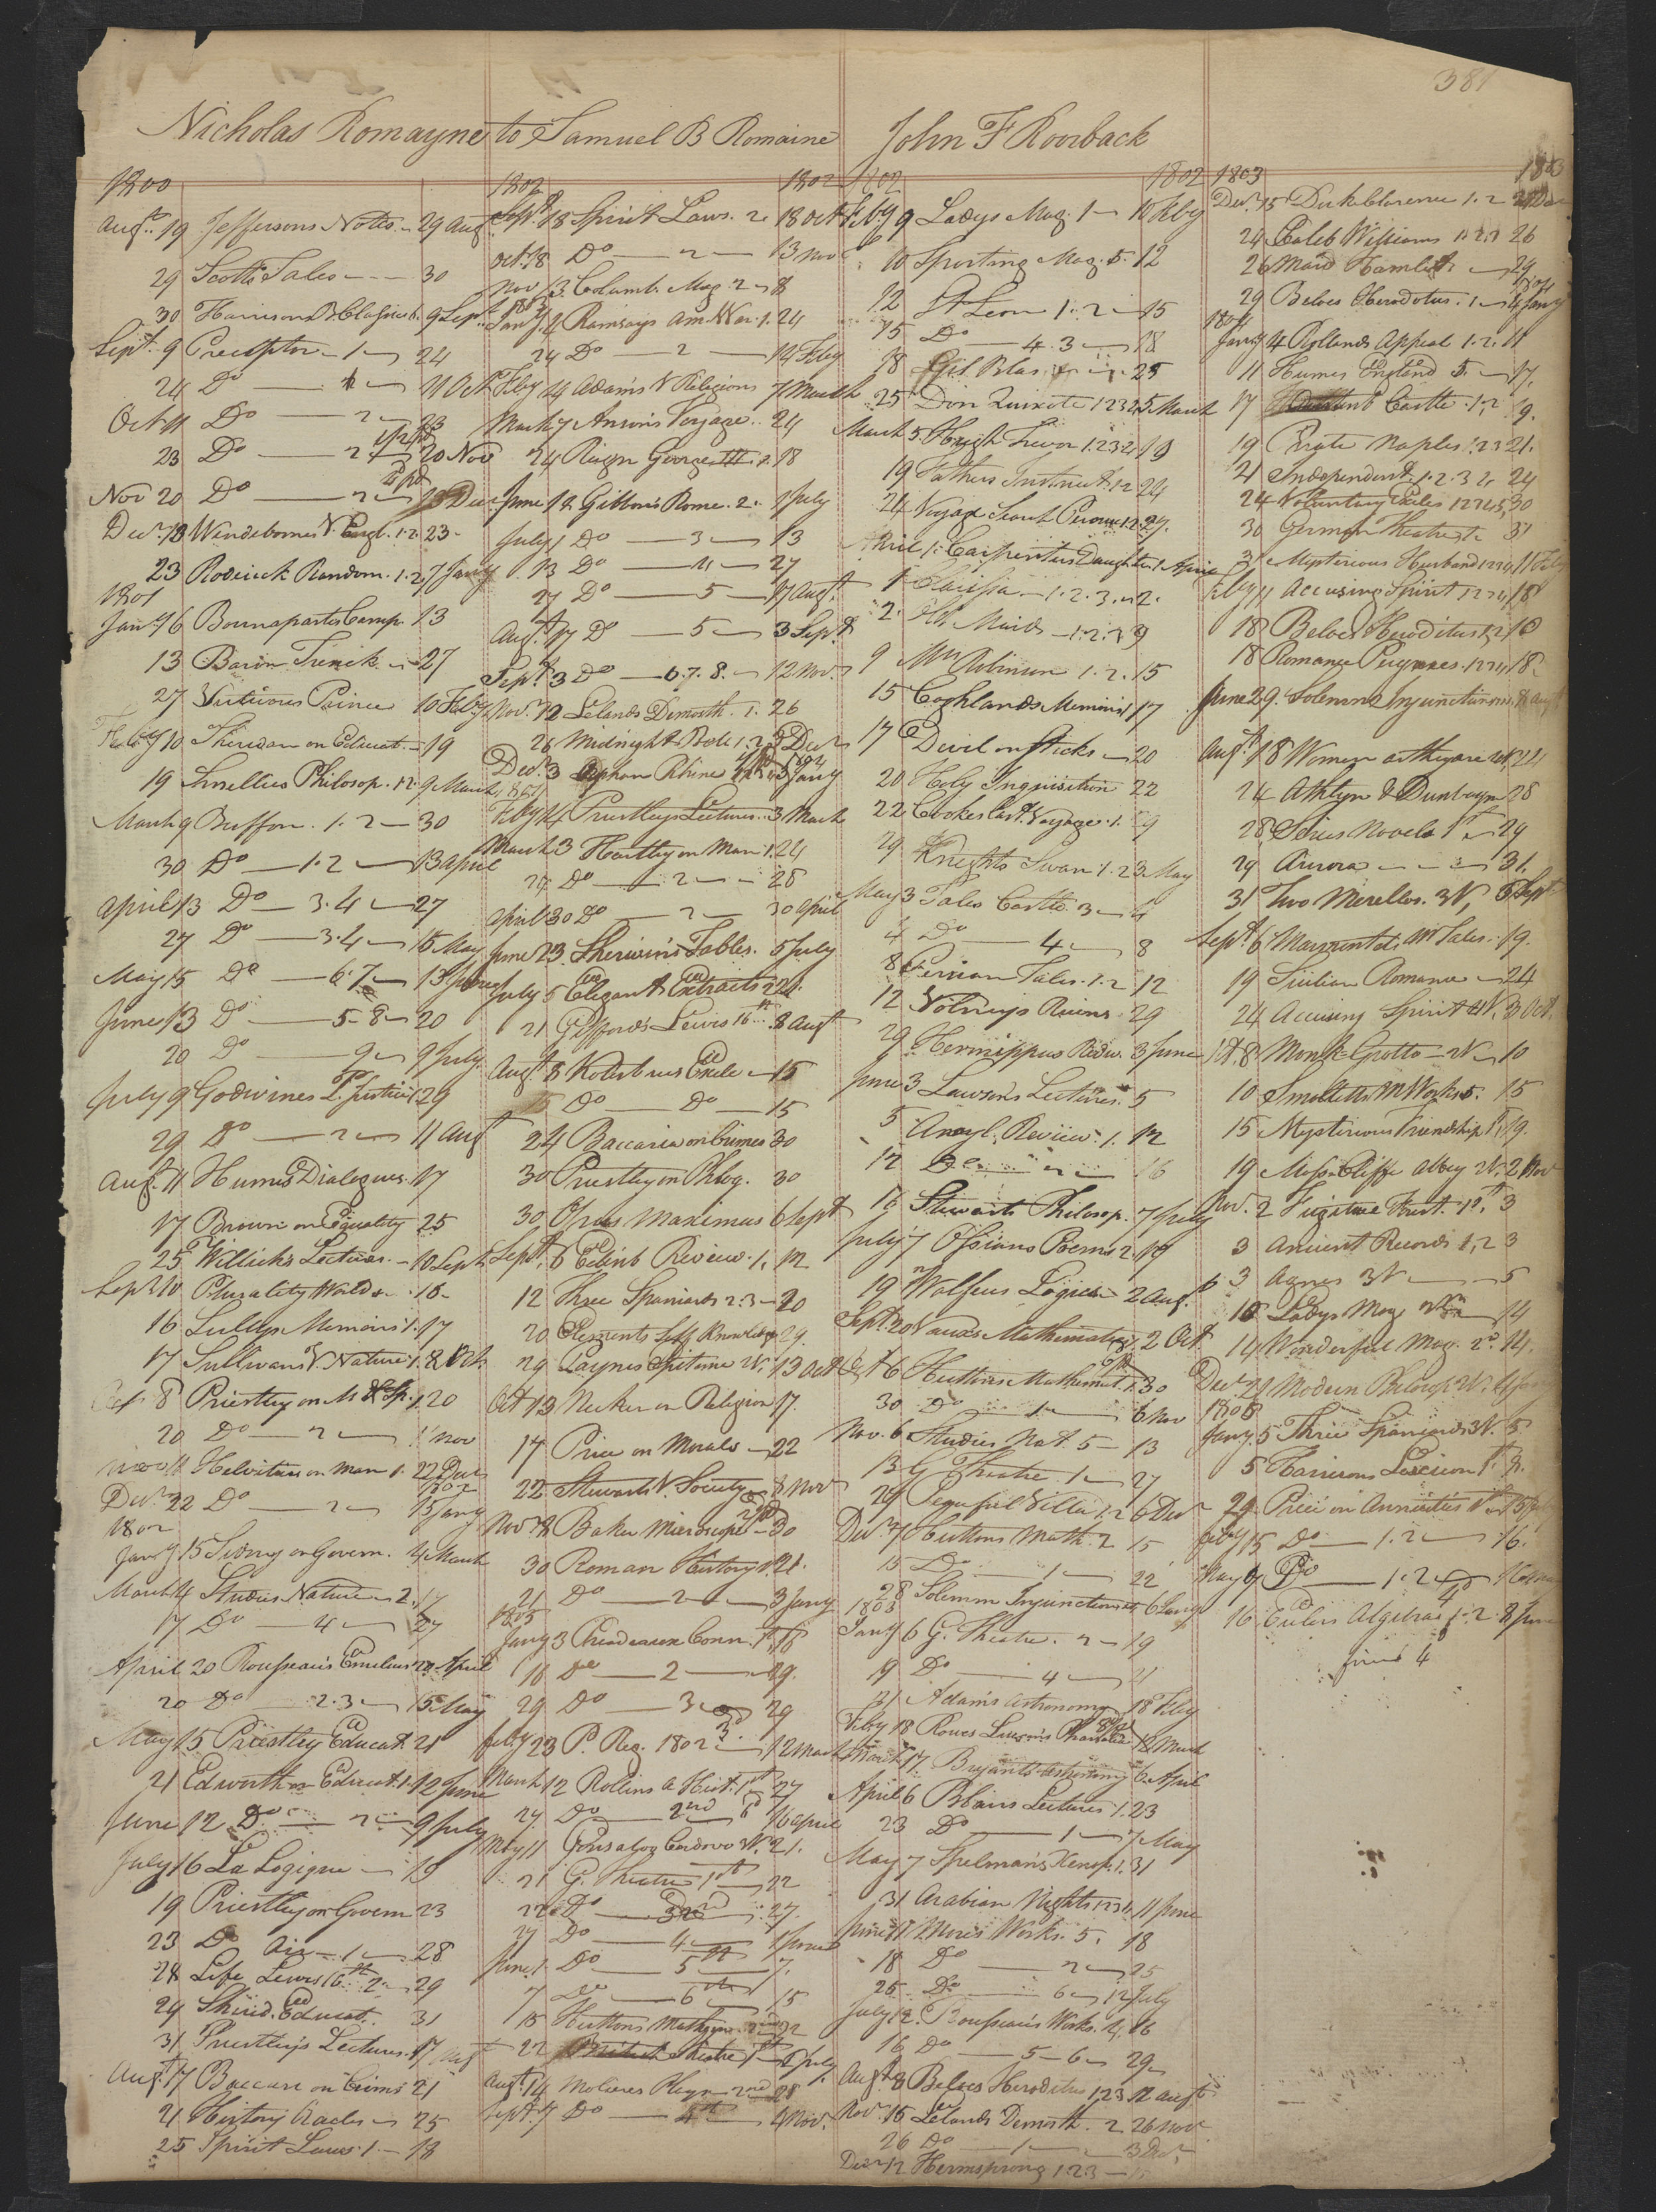 381
Nicholas Romayne to Samuel B Romaine
1800
Augt. 19 Jeffersons Notes 29 Aug
29 Scotts Tales 30
30 Harrisons B. Classics 6. 9 Sept.
Sept. 9 Preceptor 1 24
24 Do 1 11 Oct
Oct 11 Do 2 23
23 Do 2 20 Nov
Nov 20 Do 2 18 Dec
Decr. 18 Wendebornes V. Engl. 1.2. 23
23 Roderick Random. 1.2. 7 Jany
1801
Jany 6 Bounaparts Camp. 13
13 Baron Trenck 27
27 Virtuous Prince 10 Feby
Feby 10 Sheridan on Educat. 19
19 Smellies Philosop. 1.2. 9 March
March 9 Buffon. 1. 2 30
30 Do 1.2 13 April
April 13 Do 3.4 27
27 Do 3.4 15 May
May 15 Do 6.7 13 June
June 13 Do 5-8 20
20 Do 9 9 July
July 9 Godwines P. Justice 1 29
29 Do 2 11 Aug
Aug. 11 Humes Dialogues. 17
17 Brown on Equality 25
25 Willichs Lectures. 10 Sept
Sept 10 Plurality Worlds 16
16 Sullys Memoirs 1. 17
17 Sullivans V. Nature 1. 8 Oct
Oct 8 Priestley on M & Sp. 1. 20
20 Do 2 11 Nov
Nov 11 Helvitius on Man 1. 22 Decr
Decr. 22 Do 2 15 Jany
1802
1802
Jany 15 Sidney on Govern. 4 March
March 4 Studies Nature 2. 17
17 Do 4 27
April 20 Rousseau's Emelius 1 20 April
20 Do 2.3 15 May
May 15 Priestley Educat. 21
21 Edworth on Educat. 1. 12 June
June 12 Do 2 9 July
July 16 La Logique 19
19 Priestley on Govern 23
23 Do Air 1 28
28 Life Lewis 16th 2 29
29 Sherid. Educat. 31
31 Priestley's Lectures. 17 Augt
Augt. 17 Baccari on Crims 21
21 History Oracles 25
25 Spirit Laws. 1. 18
1802 1802
Sept 18 Spirit Laws. 2. 18 Oct
Oct. 18 Do 2 13 Nov
Nov 13 Columb. Mag. 2 8
Jany. 4 Ramsays Am. War. 1. 24
24 Do 2 14 Feby
Feby 14 Adams V Religions 7 March
March 7 Ansons Voyage. 24
24 Reign George III 2. 18
June 12 Gibbons Rome. 2. 1 July
July 1 Do 3 13
13 Do 4 27
27 Do 5 17 Augt.
Augt. 17 Do 5 3 Sept
Sept. 3 Do 6.7.8. 12 Nov.
Nov. 12 Lelands Demosth. 1. 26
26 Midnight Bell 1.2.3 3 Decr
Decr. 3 Orphan Rhine 5 Jany
1804
Feby 14 Priestleys Lectures 3 March
March 3 Hartley on Man 1. 24
24 Do 2 28
April 30 Do 2 30 April
June 23 Sherwins Tables. 5 July
July 5 Elegant Extracts 21.
21 Giffords Lewis 16th 8 Augt
Augt 8 Kotzebues Exile 15
15 Do Do 15
24 Baccaria on Crimes 30
30 Priestley on Phlog. 30
30 Opus Maximus 6 Sept
Sept. 6 Edinb Review. 1. 12
12 Three Spaniards 2.3 20
20 Elements Usefl Knowledge 29.
29 Paynes Epitome 2V. 13 Oct
Oct 13 Necker on Religion 17.
17 Price on Morals 22
22 Stewarts V. Society 8 Nov
Nov. 8 Baker Microscope 30
30 Roman History 1. 21.
21 Do 2 3 Jany
1805
Jany 3 Prideaux Conn. 1st 18
18 Do 2 29.
29 Do 3 29
Feby 23 P. Reg. 1802 12 March
March 12 Rollins A Hist. 1st 27
27 Do 2nd 16 April
May 11 Gonsalvo Cordovo 3V. 21.
21 G. Theatre 1st 22
22 Do 27.
27 Do 4 1 June
June 1. Do 5th 7.
7 Do 6th 15
15 Huttons Mathem. 2nd 22
22 British Theatre 1st July
Augt. 14 Molieres Plays 2nd 28
Sept 7 Do 4th 4 Nov.
John F Roorback
1802 1802
Feby 9 Ladys Mag. 1 10 Feby
10 Sporting Mag. 5 12
12 St Leon 1. 2 15
15 Do 4. 3 18
18 Gil Blas 25
25 Don Quixote 1 2 3 4 5 March
March 5 Hugh Trevor 1.2.3.4 19
19 Fathers Instruct 1.2 24
24 Voyage Search Perouse 1.2 27.
April 1. Carpenters Daughter 1 April
1 Clarissa 1.2.3. 2.
2. Old Maids 1.2.3 9
9 Mrs Robinson 1.2. 15
15 Coghlands Memoirs 17
17 Devil on Sticks 20
20 Holy Inquisition 22
22 Cookes Last Voyage. 1. 29
29 Knights Swan 1.2 3 May
May 3 Tales Castle 3 4
4 Do 4 8
8 Persian Tales. 1.2 12
12 Volneys Ruins 29
29 Hermippus Rediv. 3 June
June 3 Lawsons Lectures 5
5 Anayl. Review. 1. 12
12 Do 2 16
16 Stewarts Philosop. 7 July
July 7 Ossians Poems 2. 19
19 Wolfius Logica 2 Aug.
Sept. 20 Vauxs Mathematics 1. 2 Oct
Oct 6 Huttons Mathemat. 1. 30
30 Do 1 6 Nov
Nov. 6 Studies Nat. 5 13
13 G Theatre. 1 27
29 Peaceful Villa 1.2 6 Decr
Decr 7 Huttons Math. 2 15
15 Do 1 22
28 Solemn Injunction 6 Jany
1803
Jany 6 G. Theatre. 2 19
19 Do 4 21
21 Adams Astronomy 18 Feby
Feby 18 Rowes Lucans Pharsalia 12 March
March 17. Bryants Astronomy 6 April
April 6 Blairs Lectures 1. 23
23 Do 1 7 May
May 7 Spelmans Xenop. 1. 31
31 Arabian Nights 1 2 3 4 11 June
June 11 Mores Works. 5. 18
18 Do 2 25
25 Do 6 12 July
July 12. Rousseau's Works. 4. 16
16 Do 5-6 29
Augt 8 Beloes Heroditus 1.2.3 12 Augt
Nov. 16 Lelands Demosth. 2 26 Nov
26 Do 1 3 Decr
Decr 12 Hermsprong 1.2.3
1803
Decr. 15 Duke Clarence 1.2
24 Caleb Williams 1.2.3 26
26 Maid Hamlet 29
29 Beloes Herodotus. 1 4 Jany
1804
Jany 4 Rollands Appeal 1.2. 11
11 Humes England 5. 17.
17 Castle 1.2 19.
19 Pirate Naples 1.2.3 21.
21 Independent 1.2.3 24
24 Voluntary Exile 1 2 3 4 5 30
30 German Theatre 31
31 Mysterious Husband 1 2 3 4 11 Feb
Feby 11 Accusing Spirit 1 2 3 4 18
18 Beloes Heroditus 1.2 18
18 Romance Pyrynees. 1 2 3 4 18
June 29. Solemn Injunction Augt
Augt. 18 Women as they are 24
24 Athlyn & Dunbayn 28
28 Series Novels 1st 29
29 Aurora 31.
31 Two Merellos. 3V, 6 Sept
Sept. 6 Marmontels M Tales. 19.
19 Sicilian Romance 24
24 Accusing Spirit 4V. 3 Oct.
Oct. 8 Monk Grotto 2V 10
10 Smolletts M Works 5. 15
15 Mysterious Friendship 1. 19.
19 Mossclife Abbey 2V. 2 Nov
Nov. 2 Fugitive Forest. 1st. 3
3 Ancient Records 1,2 3
3 Agnes 3V 5
10 Ladys Mag 14
14 Wonderful Mag. 2d. 14.
Decr 24 Modern Philosop 2V. 4 Jany
1805
Jany. 5 Three Spaniards 3V. 5
5 Harrisons Lexicon 1st 8.
29 Price on Annuities
Feby 15 Do 1.2 16.
May 9 Do 1.2
16 Eulers Algebra 1.2. 8 June
June 4